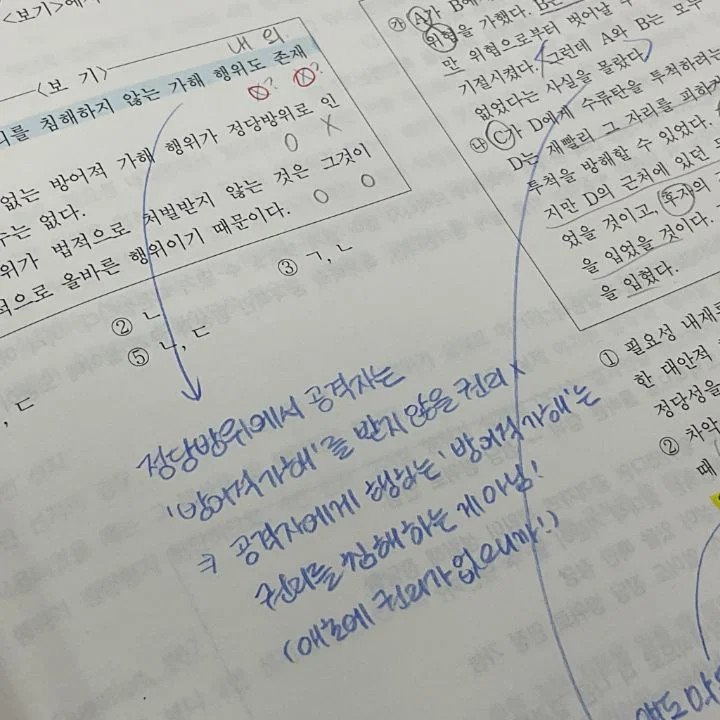 <보기>에
내 외
<보 기>
리를 침해하지 않는 가해 행위도 존재
없는 방어적 가해 행위가 정당방위로 인
수는 없다.
위가 법적으로 처벌받지 않는 것은 그것이
적으로 올바른 행위이기 때문이다.
② ㄴ
③ ㄱ, ㄴ
, ㄷ
⑤ ㄴ, ㄷ
정당방위에서 공격자는
'방어적가해'를 받지않을 권리 x
공격자에게 행하는 '방어적가해'는
권리를 침해하는 게 아님!
(애초에 권리가 없으니까!)
㉮ A가 B에
위협을 가했다. B는
만 위협으로부터 벗어날 수
기절시켰다. 그런데 A와 B는 모두
없었다는 사실을 몰랐다.
㉯ C가 D에게 수류탄을 투척하려는
D는 재빨리 그 자리를 피하거
투척을 방해할 수 있었다.
지만 D의 근처에 있던
었을 것이고, 후자의
을 입었을 것이다.
을 입혔다.
① 필요성 내재
한 대안적
정당성을
② 차악
때